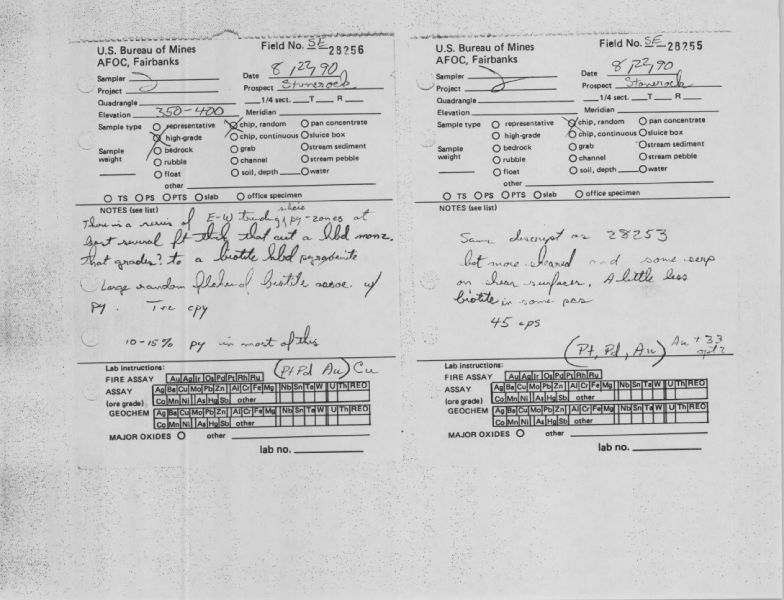 U.S. Bureau of Mines
AFOC, Fairbanks
Field No. SE 28256
Sampler
Date 8/22/90
Project
Prospect Stonerock
Quadrangle
1/4 sect. T R
Elevation 350-400
Meridian
Sample type
representative
chip, random
pan concentrate
high-grade
chip, continuous
sluice box
Sample weight
bedrock
grab
stream sediment
rubble
channel
stream pebble
float
soil, depth
water
other
TS PS PTS slab office specimen
NOTES (see list)
There is a series of E-W trending py-zones at
least several ft thick that cut a hbd monz.
that grades? to a biotite hbd pyroxenite
Large random biotite assoc. w/
py. Trc cpy
10-15% py in most of this
Lab instructions: (Pt Pd Au) Cu
FIRE ASSAY Au Ag Ir Os Pd Pt Rh Ru
ASSAY Ag Ba Cu Mo Pb Zn Al Cr Fe Mg Nb Sn Ta W U Th REO
(ore grade) Co Mn Ni As Hg Sb other
GEOCHEM Ag Ba Cu Mo Pb Zn Al Cr Fe Mg Nb Sn Ta W U Th REO
Co Mn Ni As Hg Sb other
MAJOR OXIDES other
lab no.
U.S. Bureau of Mines
AFOC, Fairbanks
Field No. SE-28255
Sampler
Date 8/22/90
Project
Prospect Stonerock
Quadrangle
1/4 sect. T R
Elevation
Meridian
Sample type
representative
chip, random
pan concentrate
high-grade
chip, continuous
sluice box
Sample weight
bedrock
grab
stream sediment
rubble
channel
stream pebble
float
soil, depth
water
other
TS PS PTS slab office specimen
NOTES (see list)
Same descript as 28253
but more sheared and some serp
on shear surfaces. A little less
biotite in some pcs
45 cps
(Pt, Pd, Au) Au + 33
Lab instructions:
FIRE ASSAY Au Ag Ir Os Pd Pt Rh Ru
ASSAY Ag Ba Cu Mo Pb Zn Al Cr Fe Mg Nb Sn Ta W U Th REO
(ore grade) Co Mn Ni As Hg Sb other
GEOCHEM Ag Ba Cu Mo Pb Zn Al Cr Fe Mg Nb Sn Ta W U Th REO
Co Mn Ni As Hg Sb other
MAJOR OXIDES other
lab no.